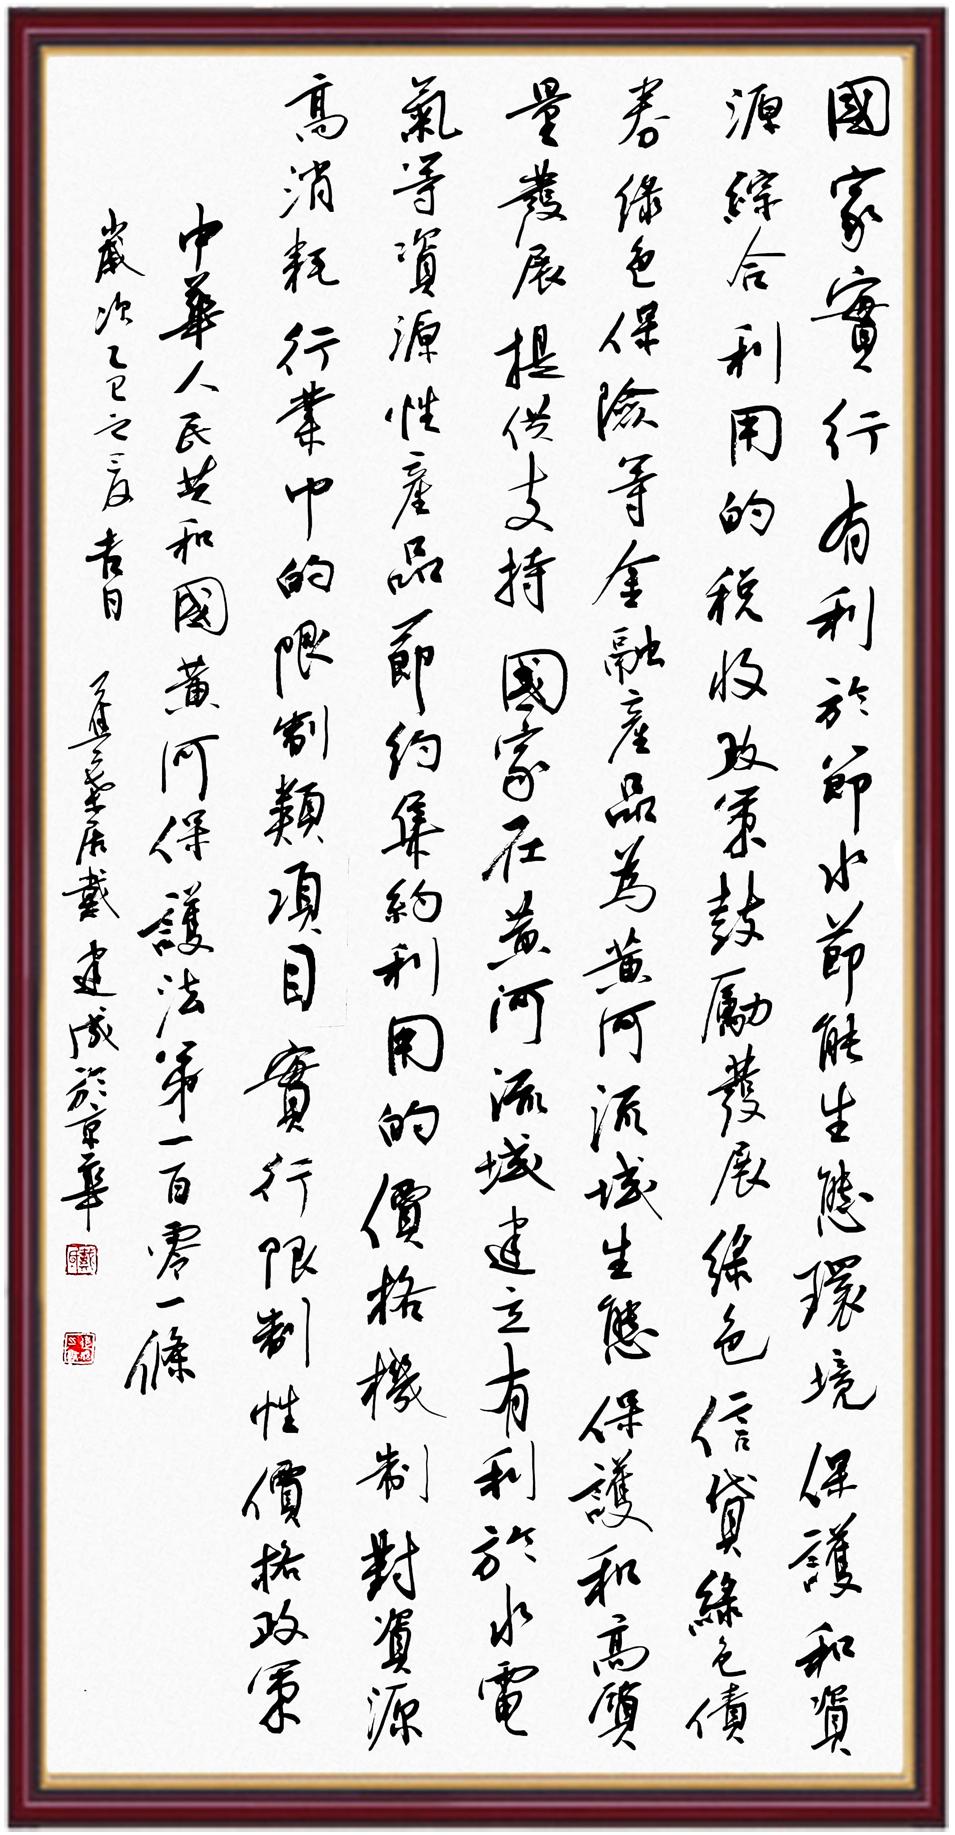 國家實行有利於節水節能生態環境保護和資
源綜合利用的税收政策鼓勵發展綠色信貸綠色債
券綠色保險等金融產品為黃河流域生態保護和高質
量發展提供支持國家在黃河流域建立有利於水電
氣等資源性產品節約集約利用的價格機制對資源
高消耗行業中的限制類項目實行限制性價格政策
中華人民共和國黃河保護法第一百零一條
歲次乙巳之夏吉日 居戴建成於京華